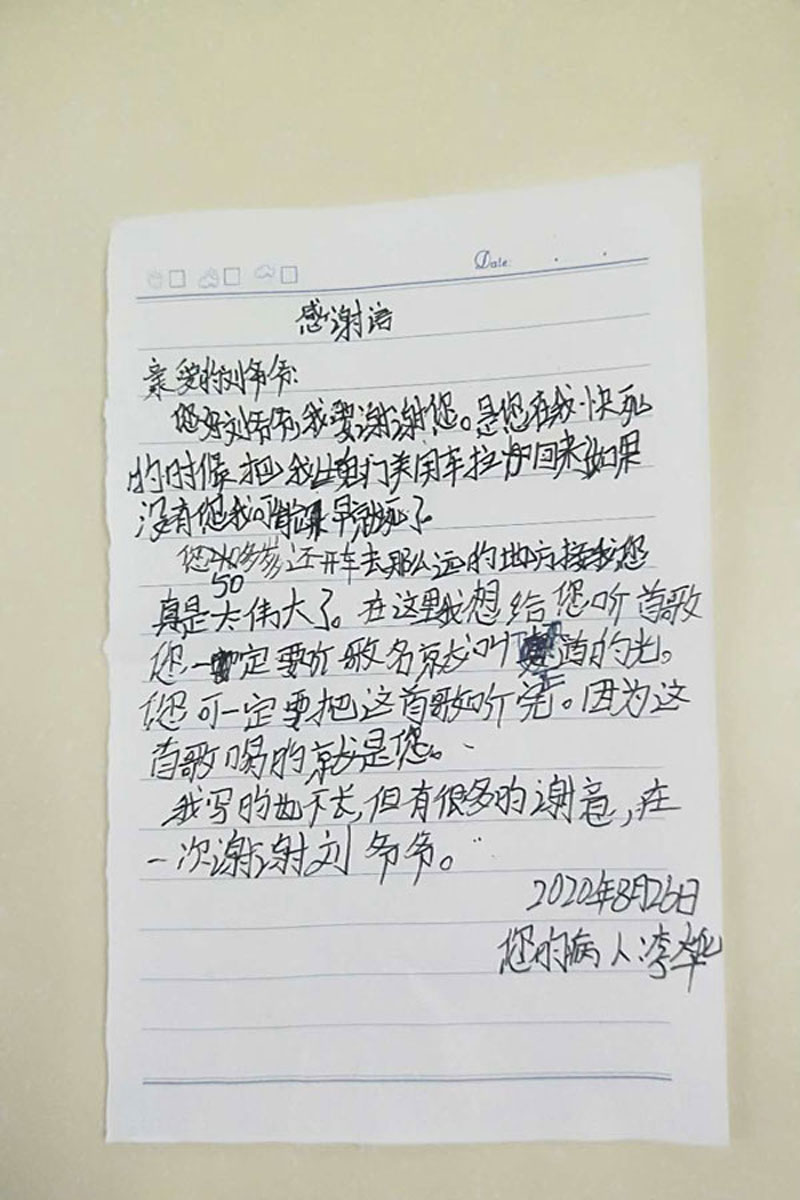 Date:
感谢语
亲爱的刘爷爷:
您好刘爷爷,我要谢谢您。是您在我快死
的时候把我从鬼门关用车拉回来,如果
没有您我可能早就死了。
您50多岁还开车去那么远的地方接我您
真是太伟大了。在这里我想给您听首歌
您一定要听歌名就叫道的光。
您可一定要把这首歌听完。因为这
首歌唱的就是您。
我写的也不长,但有很多的谢意,在
一次谢谢刘爷爷。
2020年8月26日
您的病人:李华